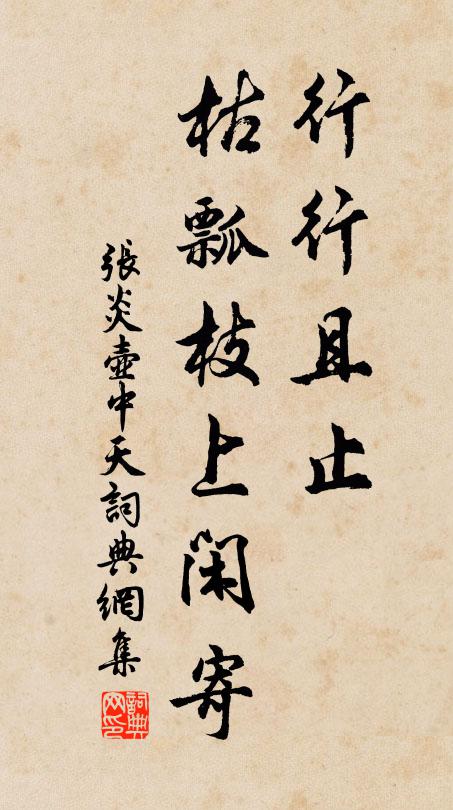 行行且止
枯瓢枝上閑寄
張炎壺中天詞典網集
詞典网印